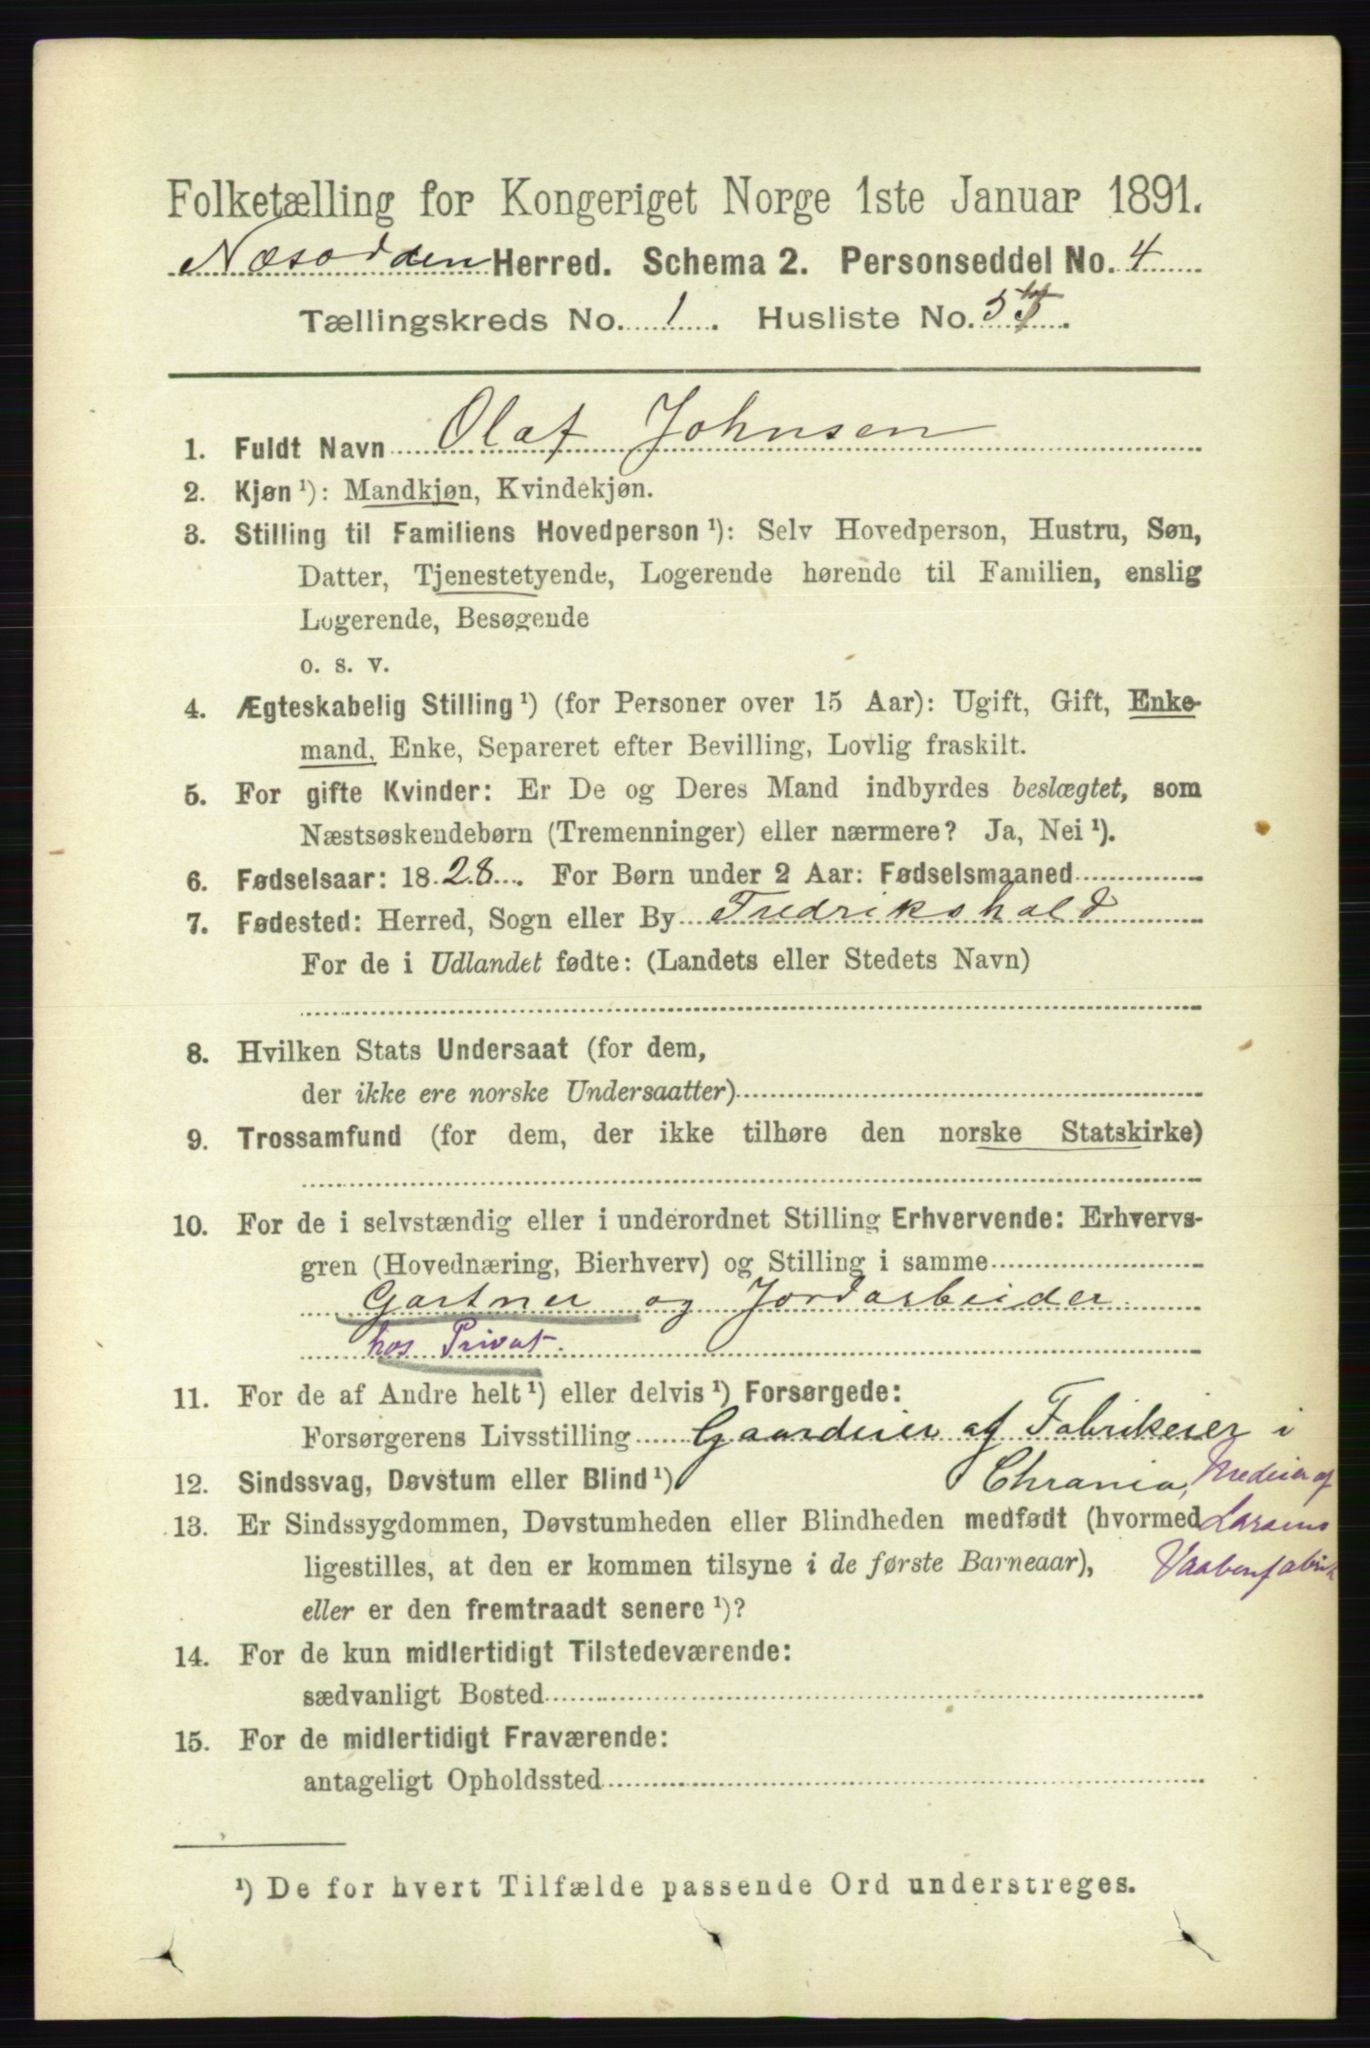 Folketælling for Kongeriget Norge 1ste Januar 1891.
Næsodden Herred. Schema 2. Personseddel No. 4
Tællingskreds No. 1. Husliste No. 55.
1. Fuldt Navn Olaf Johnsen
2. Kjøn ¹): Mandkjøn, Kvindekjøn.
3. Stilling til Familiens Hovedperson ¹): Selv Hovedperson, Hustru, Søn,
Datter, Tjenestetyende, Logerende hørende til Familien, enslig
Logerende, Besøgende
o. s. v.
4. Ægteskabelig Stilling ¹) (for Personer over 15 Aar): Ugift, Gift, Enke-
mand, Enke, Separeret efter Bevilling, Lovlig fraskilt.
5. For gifte Kvinder: Er De og Deres Mand indbyrdes beslægtet, som
Næstsøskendebørn (Tremenninger) eller nærmere? Ja, Nei ¹).
6. Fødselsaar: 1828. For Børn under 2 Aar: Fødselsmaaned
7. Fødested: Herred, Sogn eller By Fredrikshald
For de i Udlandet fødte: (Landets eller Stedets Navn)
8. Hvilken Stats Undersaat (for dem,
der ikke ere norske Undersaatter)
9. Trossamfund (for dem, der ikke tilhøre den norske Statskirke)
10. For de i selvstændig eller i underordnet Stilling Erhvervende: Erhvervs-
gren (Hovednæring, Bierhverv) og Stilling i samme
Gartner og Jordarbeider
hos Privat.
11. For de af Andre helt ¹) eller delvis ¹) Forsørgede:
Forsørgerens Livsstilling Gaardeier af Fabrikeier i
12. Sindssvag, Døvstum eller Blind ¹) Chrania, Medeier af
13. Er Sindssygdommen, Døvstumheden eller Blindheden medfødt (hvormed Larsens
ligestilles, at den er kommen tilsyne i de første Barneaar), Vaabenfabrik
eller er den fremtraadt senere ¹)?
14. For de kun midlertidigt Tilstedeværende:
sædvanligt Bosted
15. For de midlertidigt Fraværende:
antageligt Opholdssted
¹) De for hvert Tilfælde passende Ord understreges.